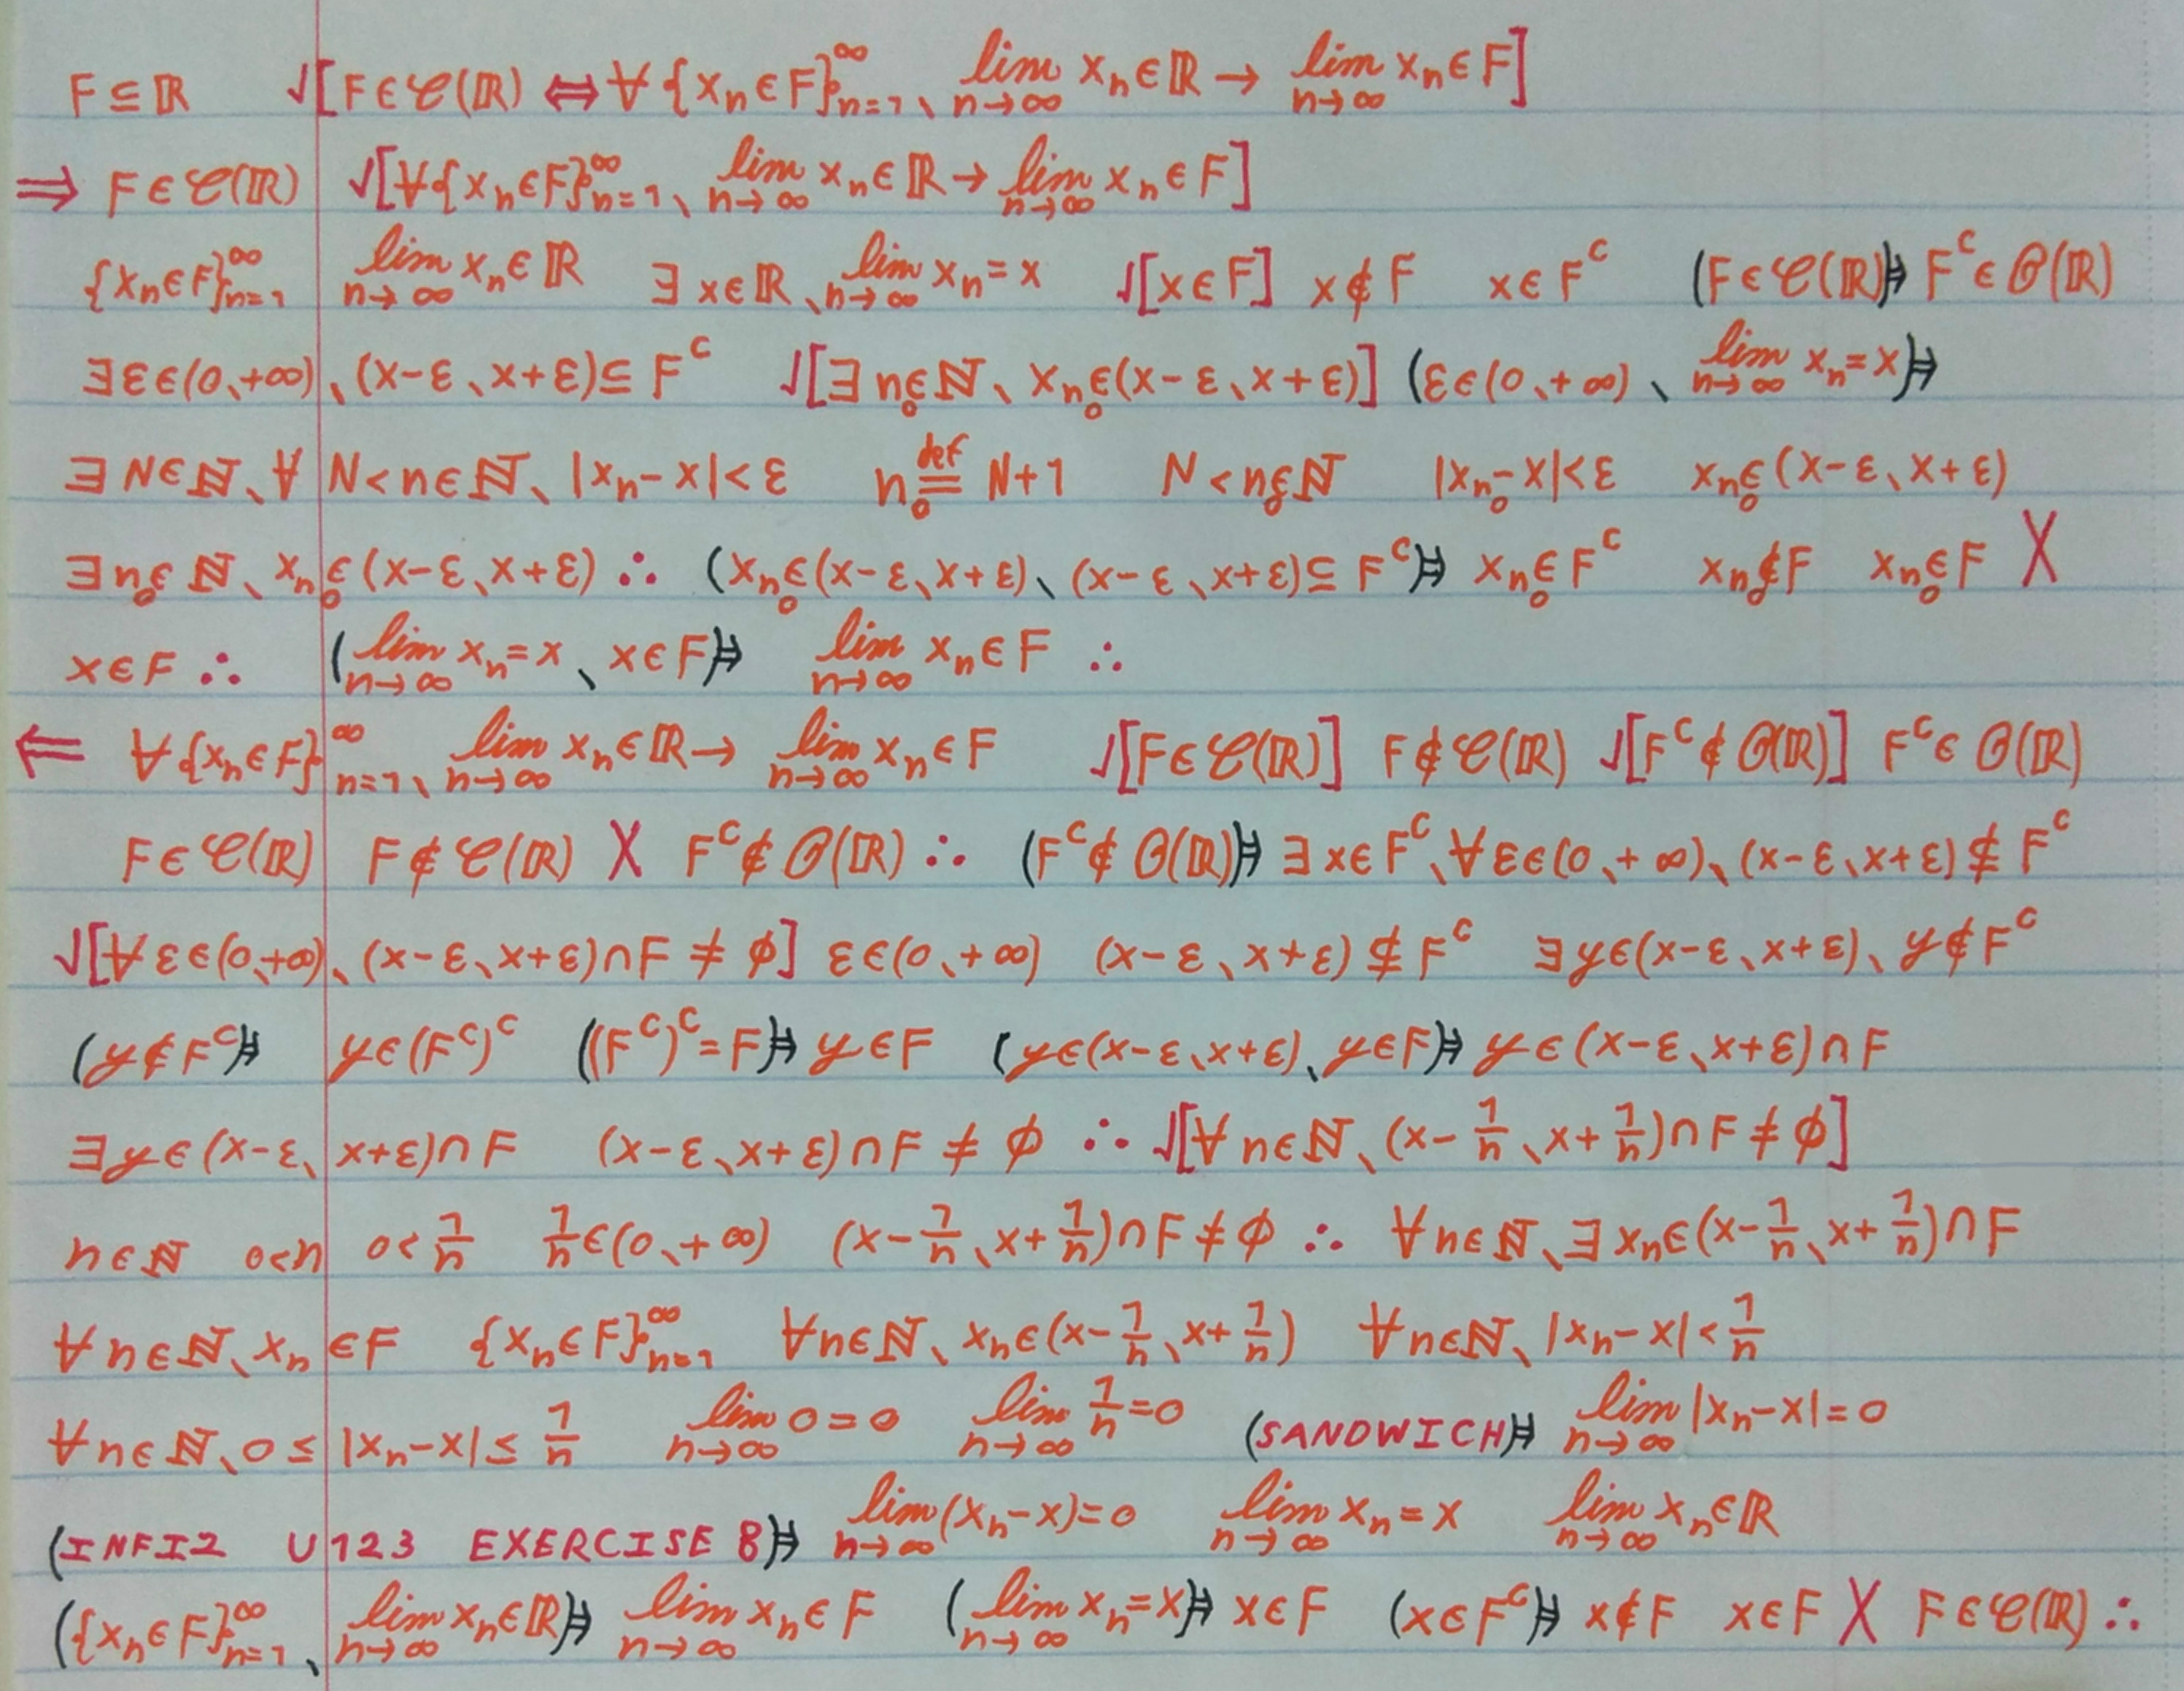 F⊆ℝ √[F∈𝒞(ℝ)⇔∀{xₙ∈F}ₙ₌₁^∞、lim_{n→∞} xₙ∈ℝ→lim_{n→∞} xₙ∈F]
⇒ F∈𝒞(ℝ) √[∀{xₙ∈F}ₙ₌₁^∞、lim_{n→∞} xₙ∈ℝ→lim_{n→∞} xₙ∈F]
{xₙ∈F}ₙ₌₁^∞ lim_{n→∞} xₙ∈ℝ ∃x∈ℝ、lim_{n→∞} xₙ=x √[x∈F] x∉F x∈F^C (F∈𝒞(ℝ))⇒ F^C∈𝒪(ℝ)
∃ε∈(0、+∞)、(x-ε、x+ε)⊆F^C √[∃n₀∈ℕ、x_{n₀}∈(x-ε、x+ε)] (ε∈(0、+∞)、lim_{n→∞} xₙ=x)⇒
∃N∈ℕ、∀N<n∈ℕ、|xₙ-x|<ε n₀ ≝ N+1 N<n₀∈ℕ |x_{n₀}-x|<ε x_{n₀}∈(x-ε、x+ε)
∃n₀∈ℕ、x_{n₀}∈(x-ε、x+ε) ∴ (x_{n₀}∈(x-ε、x+ε)、(x-ε、x+ε)⊆F^C)⇒ x_{n₀}∈F^C x_{n₀}∉F x_{n₀}∈F X
x∈F ∴ (lim_{n→∞} xₙ=x、x∈F)⇒ lim_{n→∞} xₙ∈F ∴
⇐ ∀{xₙ∈F}ₙ₌₁^∞、lim_{n→∞} xₙ∈ℝ→lim_{n→∞} xₙ∈F √[F∈𝒞(ℝ)] F∉𝒞(ℝ) √[F^C∉𝒪(ℝ)] F^C∈𝒪(ℝ)
F∈𝒞(ℝ) F∉𝒞(ℝ) X F^C∉𝒪(ℝ) ∴ (F^C∉𝒪(ℝ))⇒ ∃x∈F^C、∀ε∈(0、+∞)、(x-ε、x+ε)⊈F^C
√[∀ε∈(0、+∞)、(x-ε、x+ε)∩F≠∅] ε∈(0、+∞) (x-ε、x+ε)⊈F^C ∃y∈(x-ε、x+ε)、y∉F^C
(y∉F^C)⇒ y∈(F^C)^C ((F^C)^C=F)⇒ y∈F (y∈(x-ε、x+ε)、y∈F)⇒ y∈(x-ε、x+ε)∩F
∃y∈(x-ε、x+ε)∩F (x-ε、x+ε)∩F≠∅ ∴ √[∀n∈ℕ、(x-1/n、x+1/n)∩F≠∅]
n∈ℕ 0<n 0<1/n 1/n∈(0、+∞) (x-1/n、x+1/n)∩F≠∅ ∴ ∀n∈ℕ、∃xₙ∈(x-1/n、x+1/n)∩F
∀n∈ℕ、xₙ∈F {xₙ∈F}ₙ₌₁^∞ ∀n∈ℕ、xₙ∈(x-1/n、x+1/n) ∀n∈ℕ、|xₙ-x|<1/n
∀n∈ℕ、0≤|xₙ-x|≤1/n lim_{n→∞} 0=0 lim_{n→∞} 1/n=0 (SANDWICH)⇒ lim_{n→∞} |xₙ-x|=0
(INFI2 U123 EXERCISE 8)⇒ lim_{n→∞} (xₙ-x)=0 lim_{n→∞} xₙ=x lim_{n→∞} xₙ∈ℝ
({xₙ∈F}ₙ₌₁^∞、lim_{n→∞} xₙ∈ℝ)⇒ lim_{n→∞} xₙ∈F (lim_{n→∞} xₙ=x)⇒ x∈F (x∈F^C)⇒ x∉F x∈F X F∈𝒞(ℝ) ∴